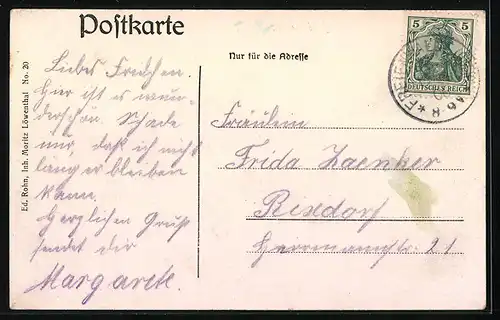 Postkarte
Nur für die Adresse
5 5
DEUTSCHES REICH
Ed. Rohn, Inh. Moritz Löwenthal No. 20
Liebes Friedchen.
Hier ist es wun-
derschön. Schade
nur, daß ich nicht
länger bleiben
kann.
Herzlichen Gruß
sendet dir
Margarete.
Fräulein
Frida Zaenker
Rixdorf
Herrmannstr. 21